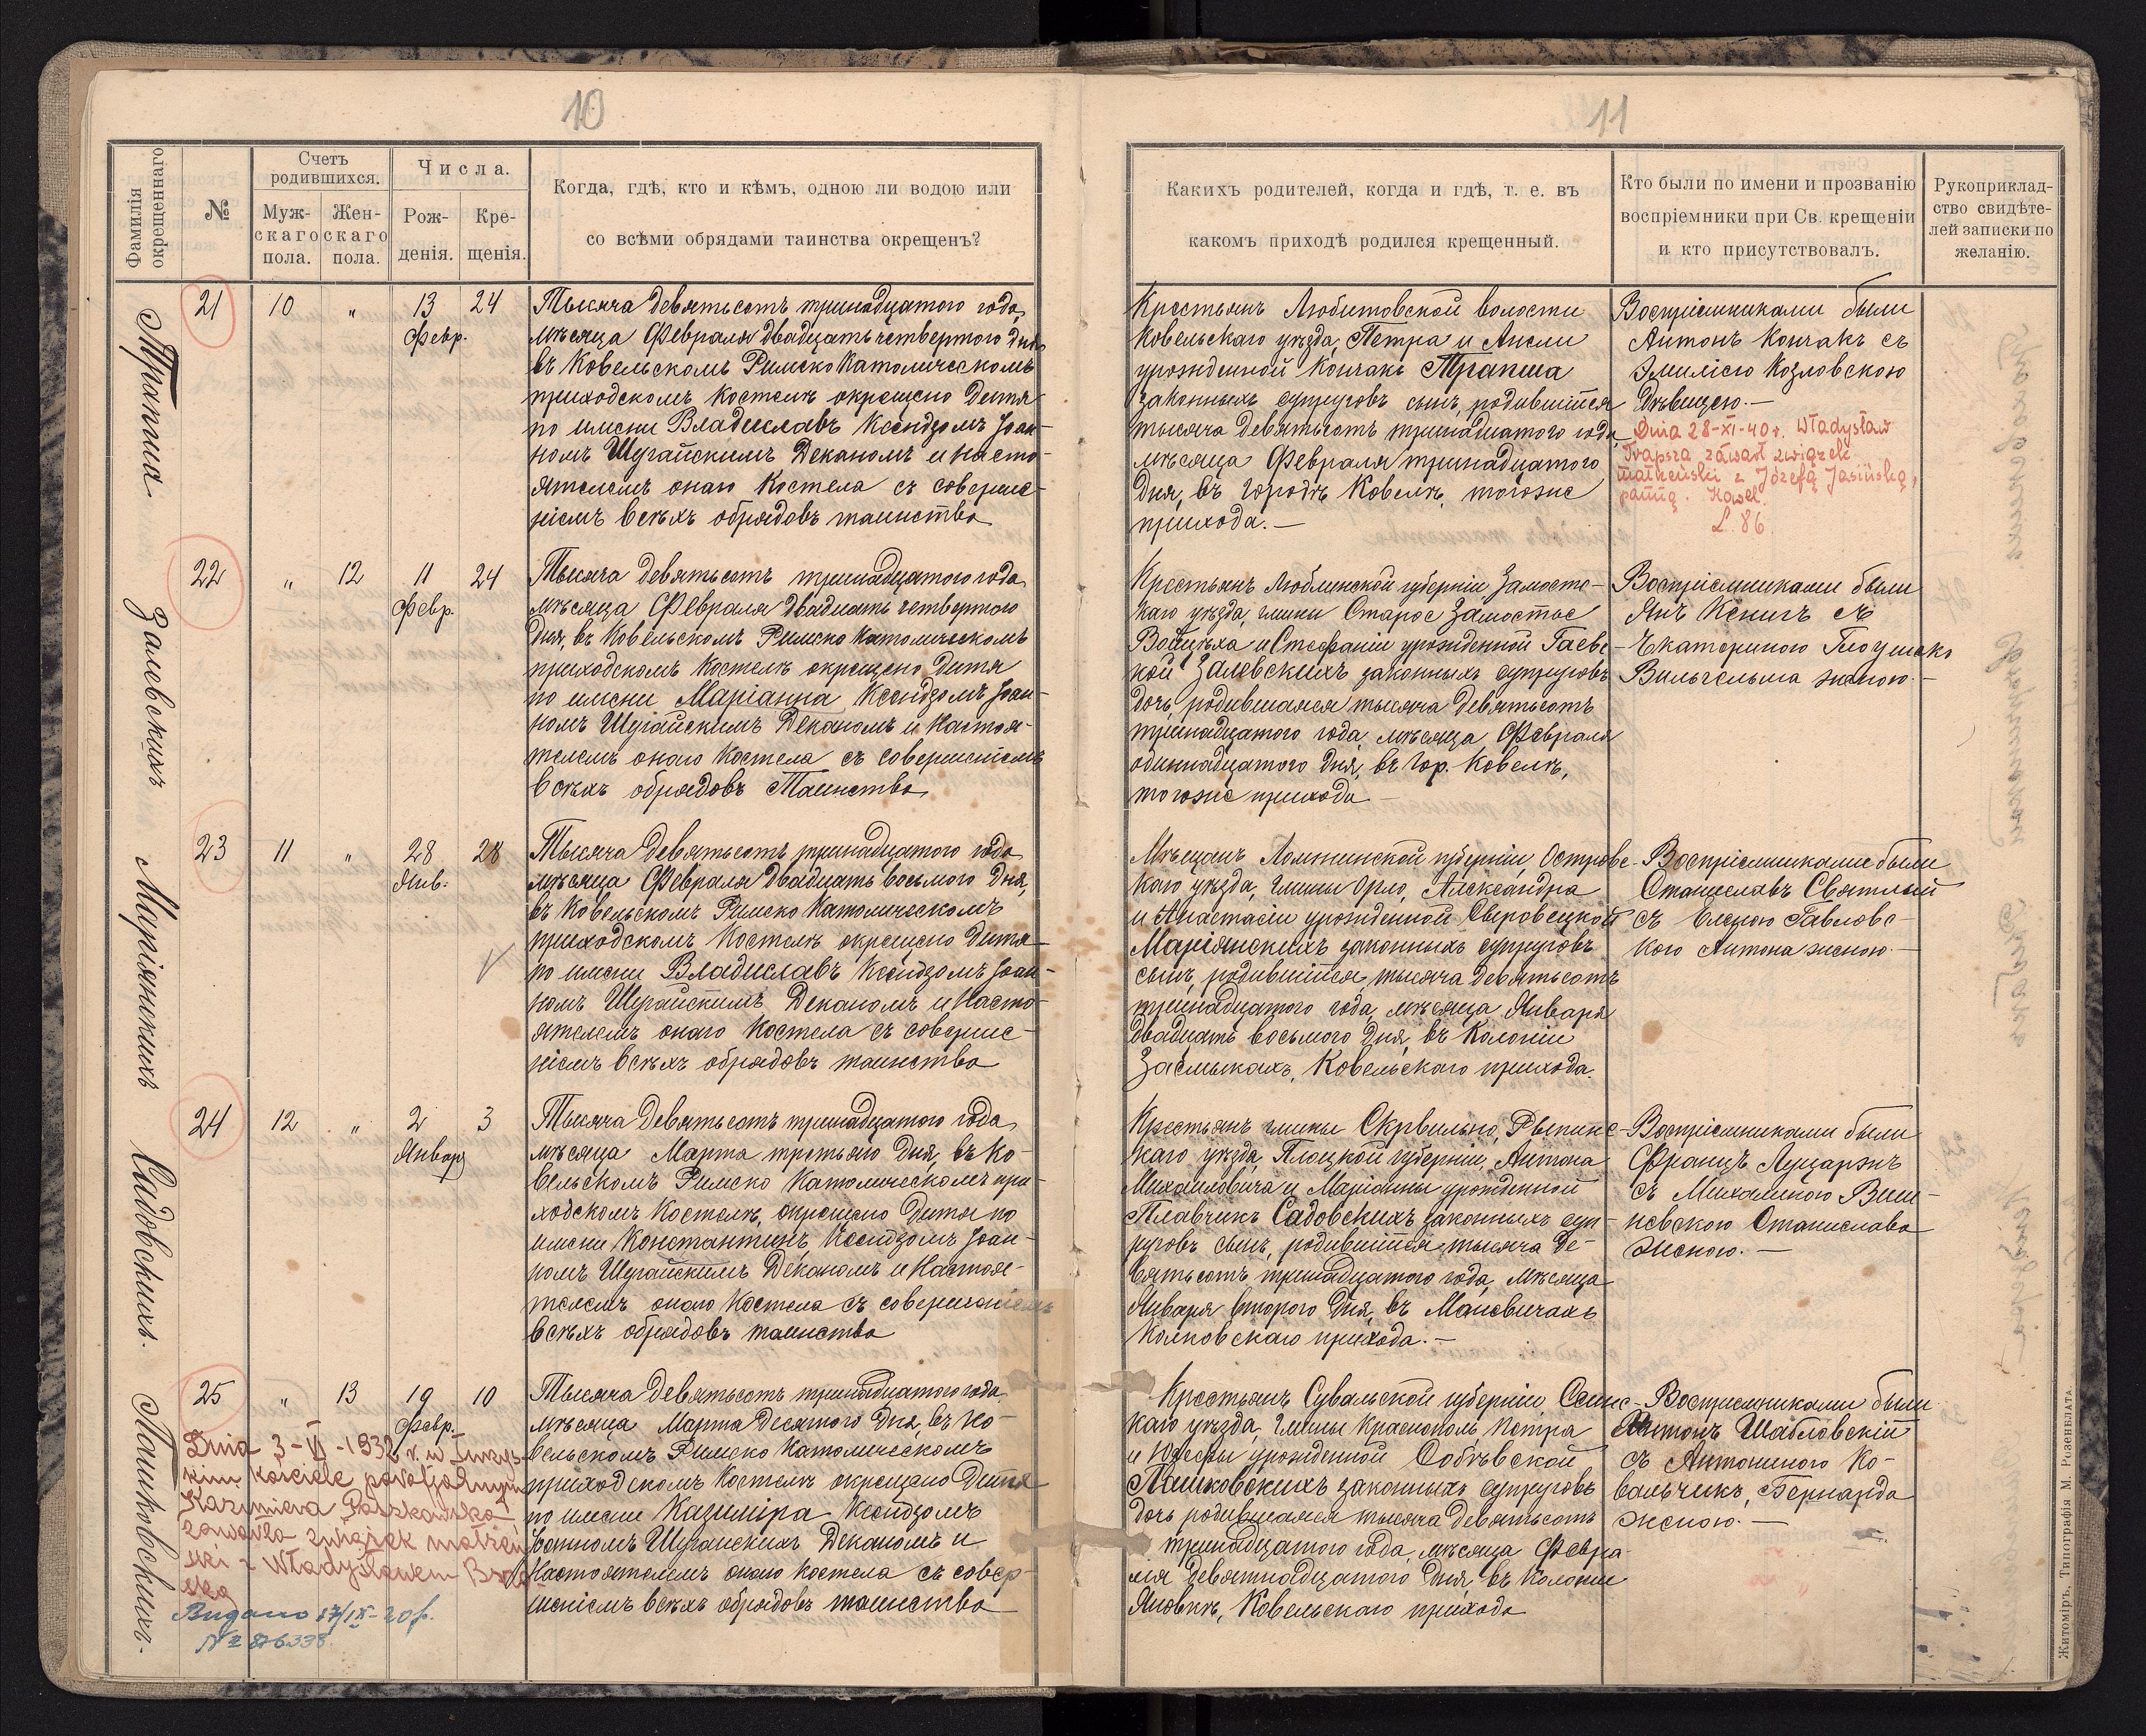 10
Фамилія окрещеннаго
№
Счетъ родившихся.
Мужскаго пола.
Женскаго пола.
Числа.
Рожденія.
Крещенія.
Когда, гдѣ, кто и кѣмъ, одною ли водою или
со всѣми обрядами таинства окрещенъ?
Трапша
21
10
"
13
Февр.
24
Тысяча девятьсотъ тринадцатого года,
мѣсяца Февраля двадцать четвертого дня
въ Ковельскомъ Римско Католическомъ
приходскомъ Костелѣ окрещено Дитя
по имени Владиславъ Ксендзомъ Іоан-
номъ Шугайскимъ Деканомъ и Насто-
ятелемъ онаго Костела съ соверше-
ніемъ всѣхъ обрядовъ таинства
Залевскихъ
22
"
12
11
Февр.
24
Тысяча девятьсотъ тринадцатого года
мѣсяца Февраля двадцать четвертого
дня, въ Ковельскомъ Римско Католическомъ
приходскомъ Костелѣ окрещено Дитя
по имени Маріанна Ксендзомъ Іоан-
номъ Шугайскимъ Деканомъ и Настоя-
телемъ онаго Костела съ совершеніемъ
всѣхъ обрядовъ Таинства
Маріянскихъ
23
11
"
28
Янв.
28
Тысяча девятьсотъ тринадцатого года
мѣсяца Февраля двадцать восьмого дня,
въ Ковельскомъ Римско Католическомъ
приходскомъ Костелѣ окрещено Дитя
по имени Владиславъ Ксендзомъ Іоан-
номъ Шугайскимъ Деканомъ и Насто-
ятелемъ онаго Костела съ соверше-
ніемъ всѣхъ обрядовъ таинства
Садовскихъ.
24
12
"
2
Январ
3
Тысяча девятьсотъ тринадцатого года
мѣсяца Марта третьяго дня, въ Ко-
вельскомъ Римско Католическомъ при-
ходскомъ Костелѣ, окрещено Дитя по
имени Константинъ, Ксендзомъ Іоан-
номъ Шугайскимъ Деканомъ и Настоя-
телемъ онаго Костела съ совершеніемъ
всѣхъ обрядовъ таинства
Пашковскихъ.
25
"
13
19
Февр.
10
Тысяча девятьсотъ тринадцатого года
мѣсяца Марта десятого дня, въ Ко-
вельскомъ Римско Католическомъ
приходскомъ Костелѣ окрещено Дитя
по имени Казиміра Ксендзомъ
Іоанномъ Шугайскимъ Деканомъ и
Настоятелемъ онаго Костела съ совер-
шеніемъ всѣхъ обрядовъ таинства
Dnia 3-VI-1932 r. w
kim Kościele parafjalnym
Kazimiera Paszkowska
zawarła związek małżeń
ski z Władysławem
ską
Выдано 17/IX-20 г.
№ 876338
11
Какихъ родителей, когда и гдѣ, т. е. въ
какомъ приходѣ родился крещенный.
Кто были по имени и прозванію
воспріемники при Св. крещеніи
и кто присутствовалъ.
Рукоприклад-
ство свидѣте-
лей записки по
желанію.
Крестьянъ Любитовской волости
Ковельскаго уѣзда, Петра и Анели
урожденной Кончакъ Трапша
законныхъ супруговъ сынъ, родившійся
тысяча девятьсотъ тринадцатого года
мѣсяца Февраля тринадцатого
дня, въ городѣ Ковелѣ, тогоже
прихода.—
Воспріемниками были
Антонъ Кончакъ съ
Эмиліею Козловскою
Дѣвицею.—
Dnia 28-XI-40 r. Władysław
Trapsza zawarł związek
małżeński z Józefą Jasińską,
panną. Kowel
L. 86.
Крестьянъ Люблинской губерніи Замостс-
каго уѣзда, гмины Старое Замостье
Войцѣха и Стефаніи урожденной Гаевс-
кой Залевскихъ законныхъ супруговъ
дочь, родившаяся тысяча девятьсотъ
тринадцатого года, мѣсяца Февраля
одиннадцатого дня, въ гор. Ковелѣ,
тогоже прихода—
Воспріемниками были
Янъ Кенигъ съ
Екатериною
Вильгельма женою.—
Мѣщанъ Ломжинской губерніи, Островс-
каго уѣзда, гмины Орло, Александра
и Анастасіи урожденной Свѣровецкой
Маріянскихъ законныхъ супруговъ
сынъ, родившійся тысяча девятьсотъ
тринадцатого года, мѣсяца Января
двадцать восьмого дня, въ Колоніи
Засмыкахъ, Ковельскаго прихода.
Воспріемниками были
Станиславъ Святлый
съ Еленою Павловс-
кого Антона женою.—
Крестьянъ гмины Скрвильно, Рыпинс-
каго уѣзда, Плоцкой губерніи, Антона
Михаиловича и Маріанны урожденной
Плавчикъ Садовскихъ законныхъ суп-
руговъ сынъ, родившійся тысяча де-
вятьсотъ тринадцатого года, мѣсяца
Января второго дня, въ Маневичахъ
Колковскаго прихода.—
Воспріемниками были
Францъ Луцарэнъ
съ Михалиною Виш-
невскою Станислава
женою.—
Крестьянъ Сувальской губерніи Сейнс-
каго уѣзда, гмины Краснополь Петра
и Юзефы урожденной Собѣвской
Пашковскихъ законныхъ супруговъ
дочь родившаяся тысяча девятьсотъ
тринадцатого года, мѣсяца Февра-
ля девятнадцатого дня, въ Колоніи
Яновкѣ, Ковельскаго прихода
Воспріемниками были
Антонъ Шабловскій
съ Антониною Ко-
вальчикъ, Бернарда
женою.—
Житоміръ, Типографія М. Розенблата.